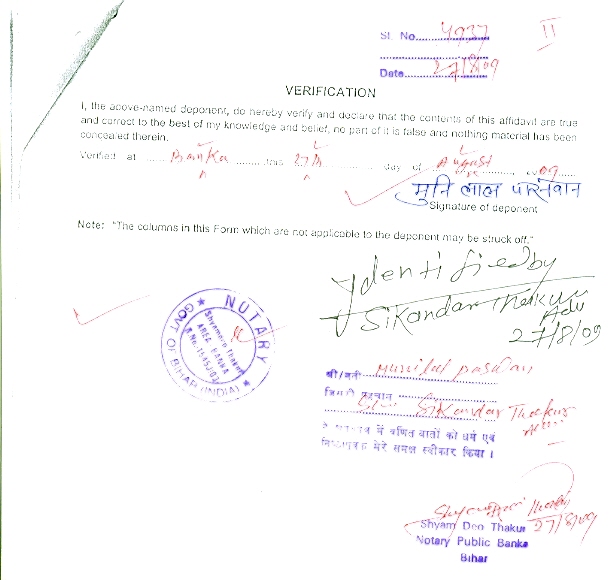 Sl. No. 4937
II
Date 27/8/09
VERIFICATION
I, the above-named deponent, do hereby verify and declare that the contents of this affidavit are true
and correct to the best of my knowledge and belief, no part of it is false and nothing material has been
concealed therein.
Verified at Banka this 27th day of August 2009
मुनि लाल पासवान
Signature of deponent
Note: "The columns in this Form which are not applicable to the deponent may be struck off."
Identified by
Sikandar Thakur
Adv
27/8/09
NOTARY
GOVT OF BIHAR (INDIA)
Thakur
AREA BANKA
श्री/मती Munilal Paswan
जिनकी पहचान
Sikandar Thakur
में वर्णित बातों को धर्म एवं
मेरे समक्ष स्वीकार किया ।
27/8/09
Shyam Deo Thakur
Notary Public Banka
Bihar